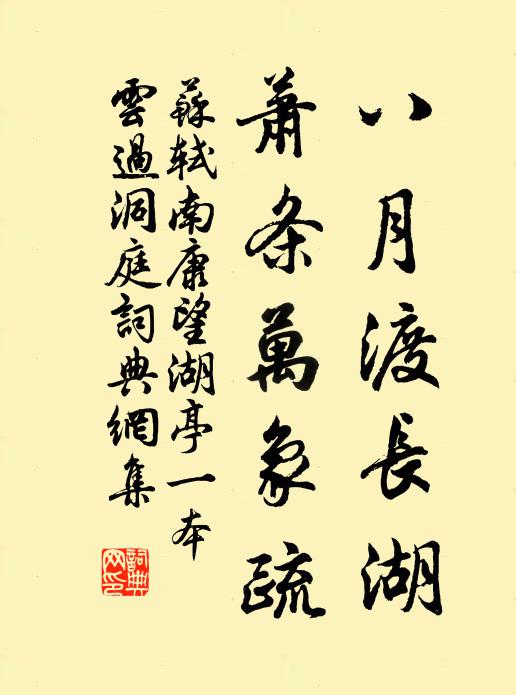 八月渡長湖
蕭条萬象疏
蘇軾南康望湖亭一本
雲過洞庭詞典網集
詞典网印